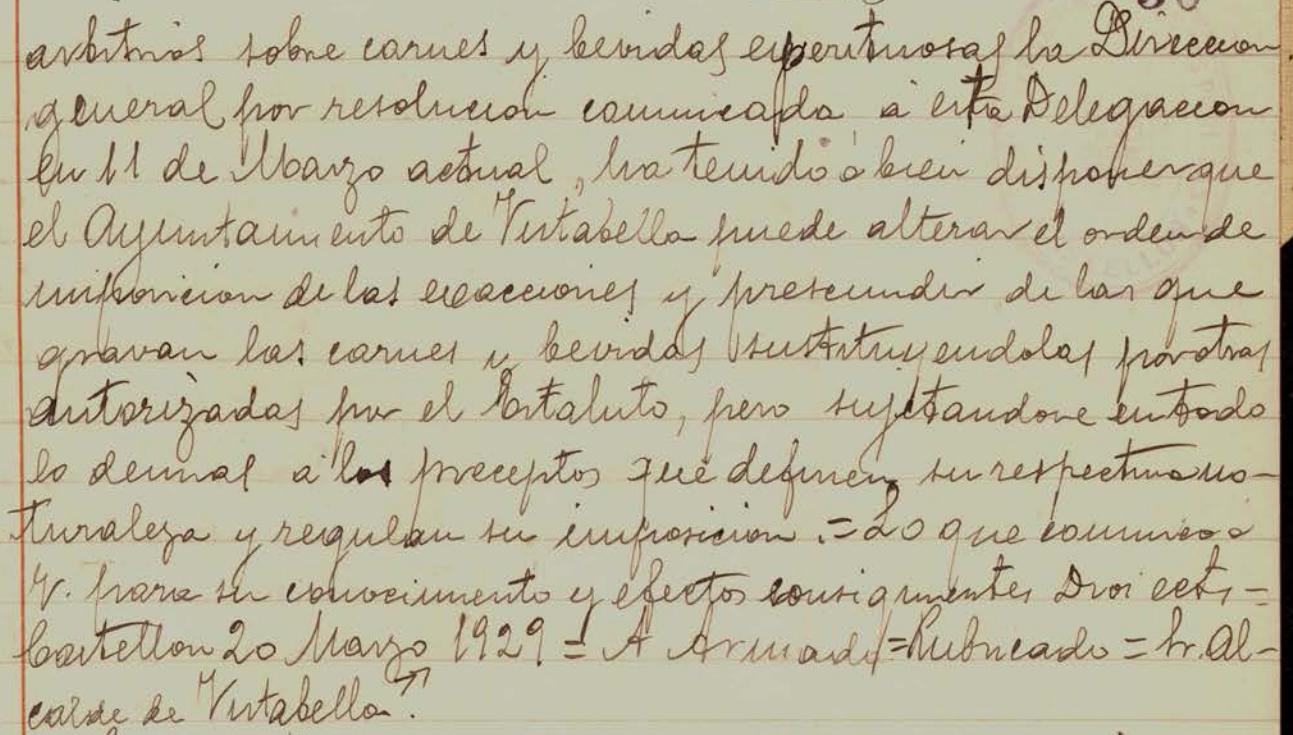 arbitrios sobre carnes y bevidas experituosas la Direccion
general por resolucion comunicada á esta Delegacion
en 11 de Marzo actual, ha tenido á bien disponer que
el Ayuntamiento de Vistabella puede alterar el orden de
imposicion de las exacciones y prescindir de las que
gravan las carnes y bevidas sustituyendolas por otras
autorizadas por el Estatuto, pero sujetandose en todo
lo demas á los preceptos que definen su respectiva na-
turaleza y regulan su imposicion.=Lo que comunico a
V. para su conocimiento y efectos consiguientes Dios ects=
Castellon 20 Marzo 1929 = A =Rubricado = Sr. Al-
calde de Vistabella".